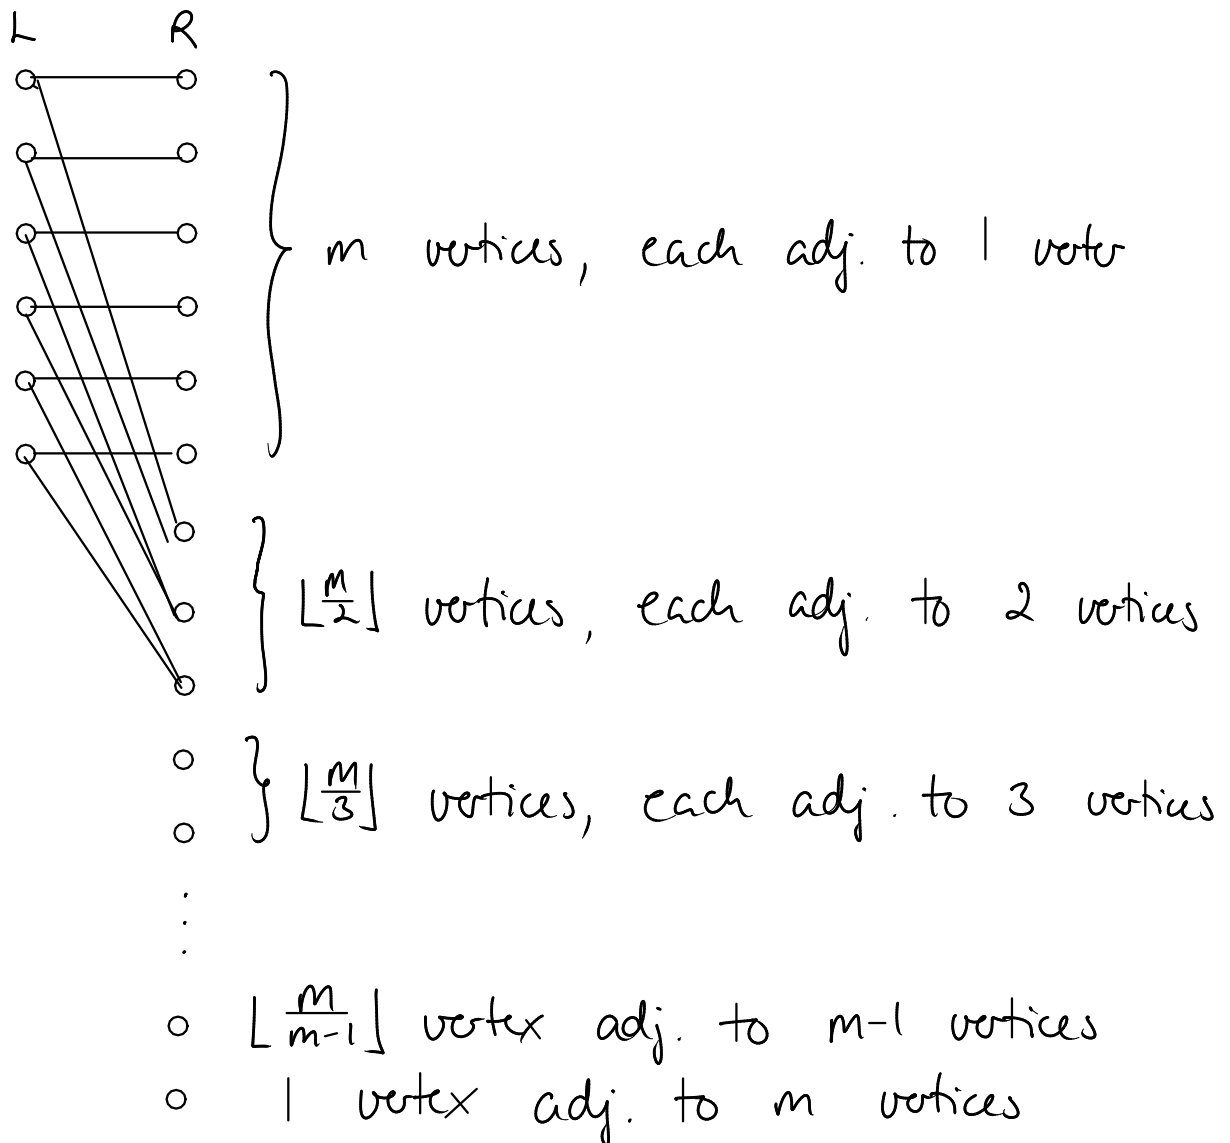 L R
m vertices, each adj. to 1 vertex
⌊m/2⌋ vertices, each adj. to 2 vertices
⌊m/3⌋ vertices, each adj. to 3 vertices
⌊m/m-1⌋ vertex adj. to m-1 vertices
1 vertex adj. to m vertices